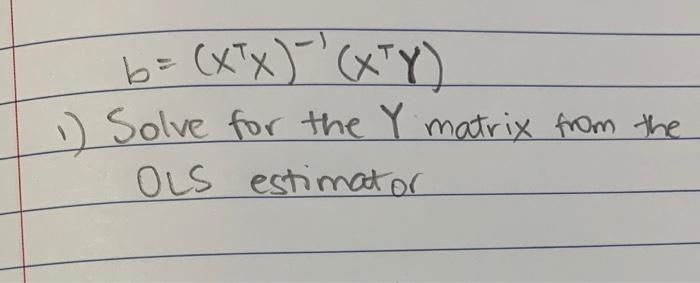 b = (XᵀX)⁻¹ (XᵀY)
1) Solve for the Y matrix from the
OLS estimator